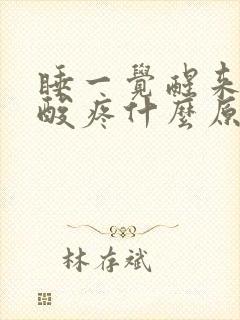 睡一覺醒来
酸疼什麼原
林存斌